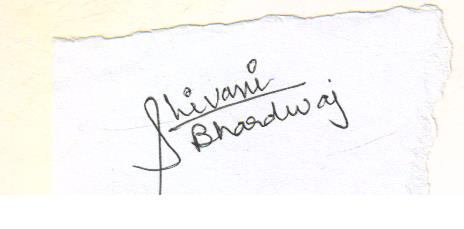 Shivani
Bhardwaj